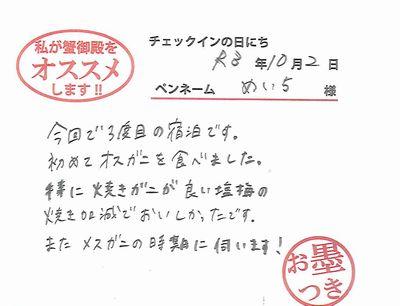 私が蟹御殿を
オススメ
します!!
チェックインの日にち
R3年10月2日
ペンネーム めいち 様
今回で3度目の宿泊です。
初めてオスガニを食べました。
特に焼きガニが良い塩梅の
焼き加減でおいしかったです。
またメスガニの時期に伺います!
お墨
つき